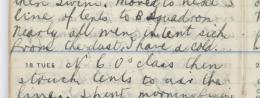 then swims. Moved to head
line of tents to B Squadron
Nearly all men in tent sick
from the dust. I have a cold.
18 TUES N.C.O's class then
struck tents to air the
lines. Spent morning